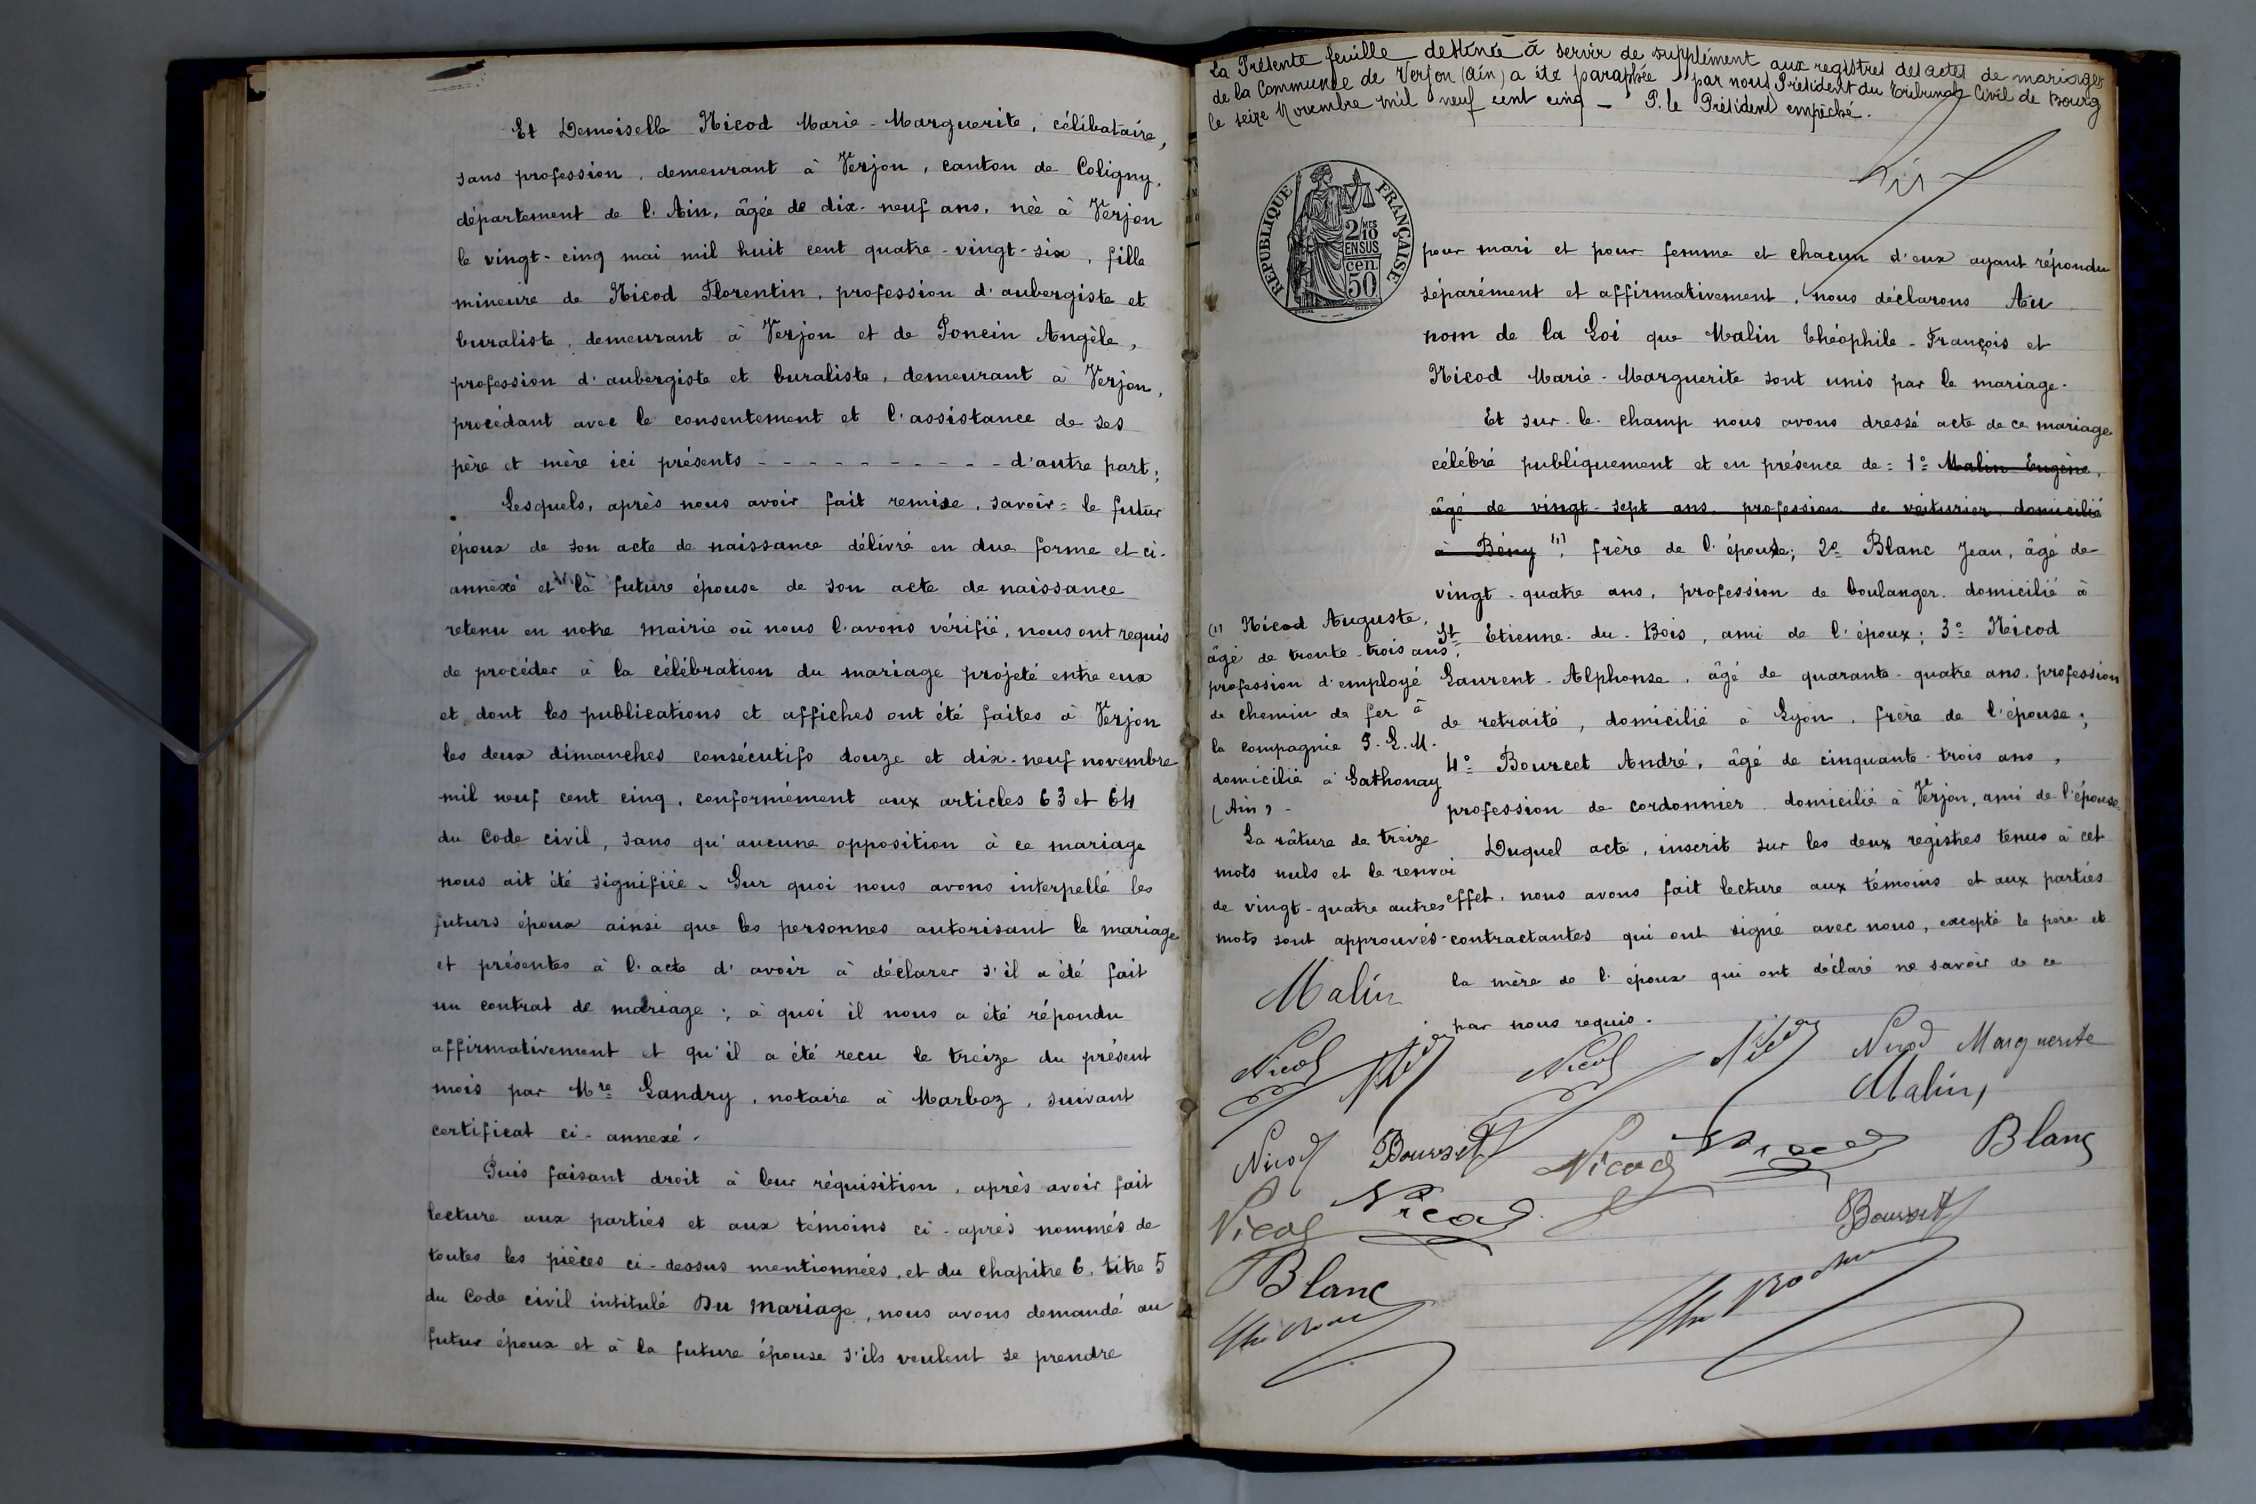 Et Demoiselle Nicod Marie-Marguerite, célibataire,
sans profession, demeurant à Verjon, canton de Coligny,
département de l'Ain, âgée de dix-neuf ans, née à Verjon
le vingt-cinq mai mil huit cent quatre-vingt-six, fille
mineure de Nicod Florentin, profession d'aubergiste et
buraliste, demeurant à Verjon et de Poncin Angèle,
profession d'aubergiste et buraliste, demeurant à Verjon,
procédant avec le consentement et l'assistance de ses
père et mère ici présents - - - - - - - - - - d'autre part;
Lesquels, après nous avoir fait remise, savoir = le futur
époux de son acte de naissance délivré en due forme et ci-
annexé et la future épouse de son acte de naissance
retenu en notre mairie où nous l'avons vérifié, nous ont requis
de procéder à la célébration du mariage projeté entre eux
et dont les publications et affiches ont été faites à Verjon
les deux dimanches consécutifs douze et dix-neuf novembre
mil neuf cent cinq, conformément aux articles 63 et 64
du Code civil, sans qu'aucune opposition à ce mariage
nous ait été signifiée. Sur quoi nous avons interpellé les
futurs époux ainsi que les personnes autorisant le mariage
et présentes à l'acte d'avoir à déclarer s'il a été fait
un contrat de mariage; à quoi il nous a été répondu
affirmativement et qu'il a été recu le treize du présent
mois par Mre Landry, notaire à Marboz, suivant
certificat ci-annexé.
Puis faisant droit à leur réquisition, après avoir fait
lecture aux parties et aux témoins ci-après nommés de
toutes les pièces ci-dessus mentionnées, et du chapitre 6, titre 5
du Code civil intitulé Du Mariage, nous avons demandé au
futur époux et à la future épouse s'ils veulent se prendre
La Présente feuille destinée à servir de supplément aux registres des actes de mariages
de la Commune de Verjon (Ain) a été paraphée par nous Président du Tribunal Civil de Bourg
le seize Novembre mil neuf cent cinq - P. le Président empêché.
REPUBLIQUE FRANÇAISE
2/10 MES
EN SUS
50 cen.
pour mari et pour femme et chacun d'eux ayant répondu
séparément et affirmativement, nous déclarons Au
nom de la Loi que Malin Théophile-François et
Nicod Marie-Marguerite sont unis par le mariage.
Et sur-le-champ nous avons dressé acte de ce mariage
célébré publiquement et en présence de = 1° Malin Eugène,
âgé de vingt-sept ans, profession de voiturier domicilié
à Bény (1), frère de l'épouse; 2° Blanc Jean, âgé de
vingt-quatre ans, profession de boulanger domicilié à
St Etienne-du-Bois, ami de l'époux; 3° Nicod
Laurent-Alphonse, âgé de quarante-quatre ans, profession
de retraité, domicilié à Lyon, frère de l'épouse;
4° Bourcet André, âgé de cinquante-trois ans,
profession de cordonnier domicilié à Verjon, ami de l'épouse.
Duquel acte, inscrit sur les deux registres tenus à cet
effet, nous avons fait lecture aux témoins et aux parties
contractantes qui ont signé avec nous, excepté le père et
la mère de l'époux qui ont déclaré ne savoir de ce
par nous requis.
(1) Nicod Auguste,
âgé de trente-trois ans,
profession d'employé
de chemin de fer à
la compagnie P.L.M.
domicilié à Sathonay
(Ain) -
La râture de treize
mots nuls et le renvoi
de vingt-quatre autres
mots sont approuvés-
Malin
Nicod Nicod Nicod Nicod Marguerite
Malin
Nicod Bourset Nicod Nicod Blanc
Nicod Nicod Bourset
Blanc